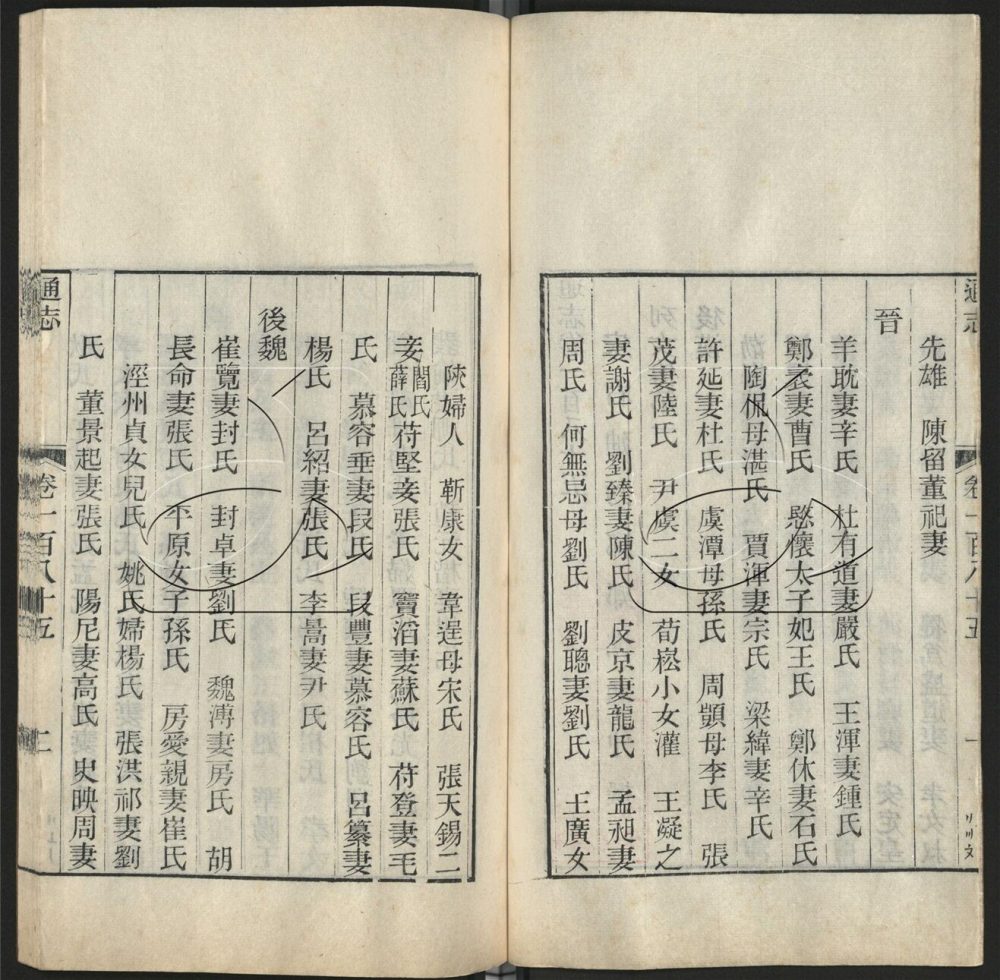 通志
卷一百八十五
一
先雄 陳留董祀妻
晉
羊耽妻辛氏 杜有道妻嚴氏 王渾妻鍾氏
鄭袤妻曹氏 愍懷太子妃王氏 鄭休妻石氏
陶侃母湛氏 賈渾妻宗氏 梁緯妻辛氏
許延妻杜氏 虞潭母孫氏 周顗母李氏 張
茂妻陸氏 尹虞二女 荀崧小女灌 王凝之
妻謝氏 劉臻妻陳氏 皮京妻龍氏 孟昶妻
周氏 何無忌母劉氏 劉聰妻劉氏 王廣女
陝婦人 靳康女 韋逞母宋氏 張天錫二
妾閻氏薛氏 苻堅妾張氏 竇滔妻蘇氏 苻登妻毛
氏 慕容垂妻段氏 段豐妻慕容氏 呂纂妻
楊氏 呂紹妻張氏 李暠妻尹氏
後魏
崔覽妻封氏 封卓妻劉氏 魏溥妻房氏 胡
長命妻張氏 平原女子孫氏 房愛親妻崔氏
涇州貞女兒氏 姚氏婦楊氏 張洪祁妻劉
氏 董景起妻張氏 陽尼妻高氏 史映周妻
通志
卷一百八十五
二